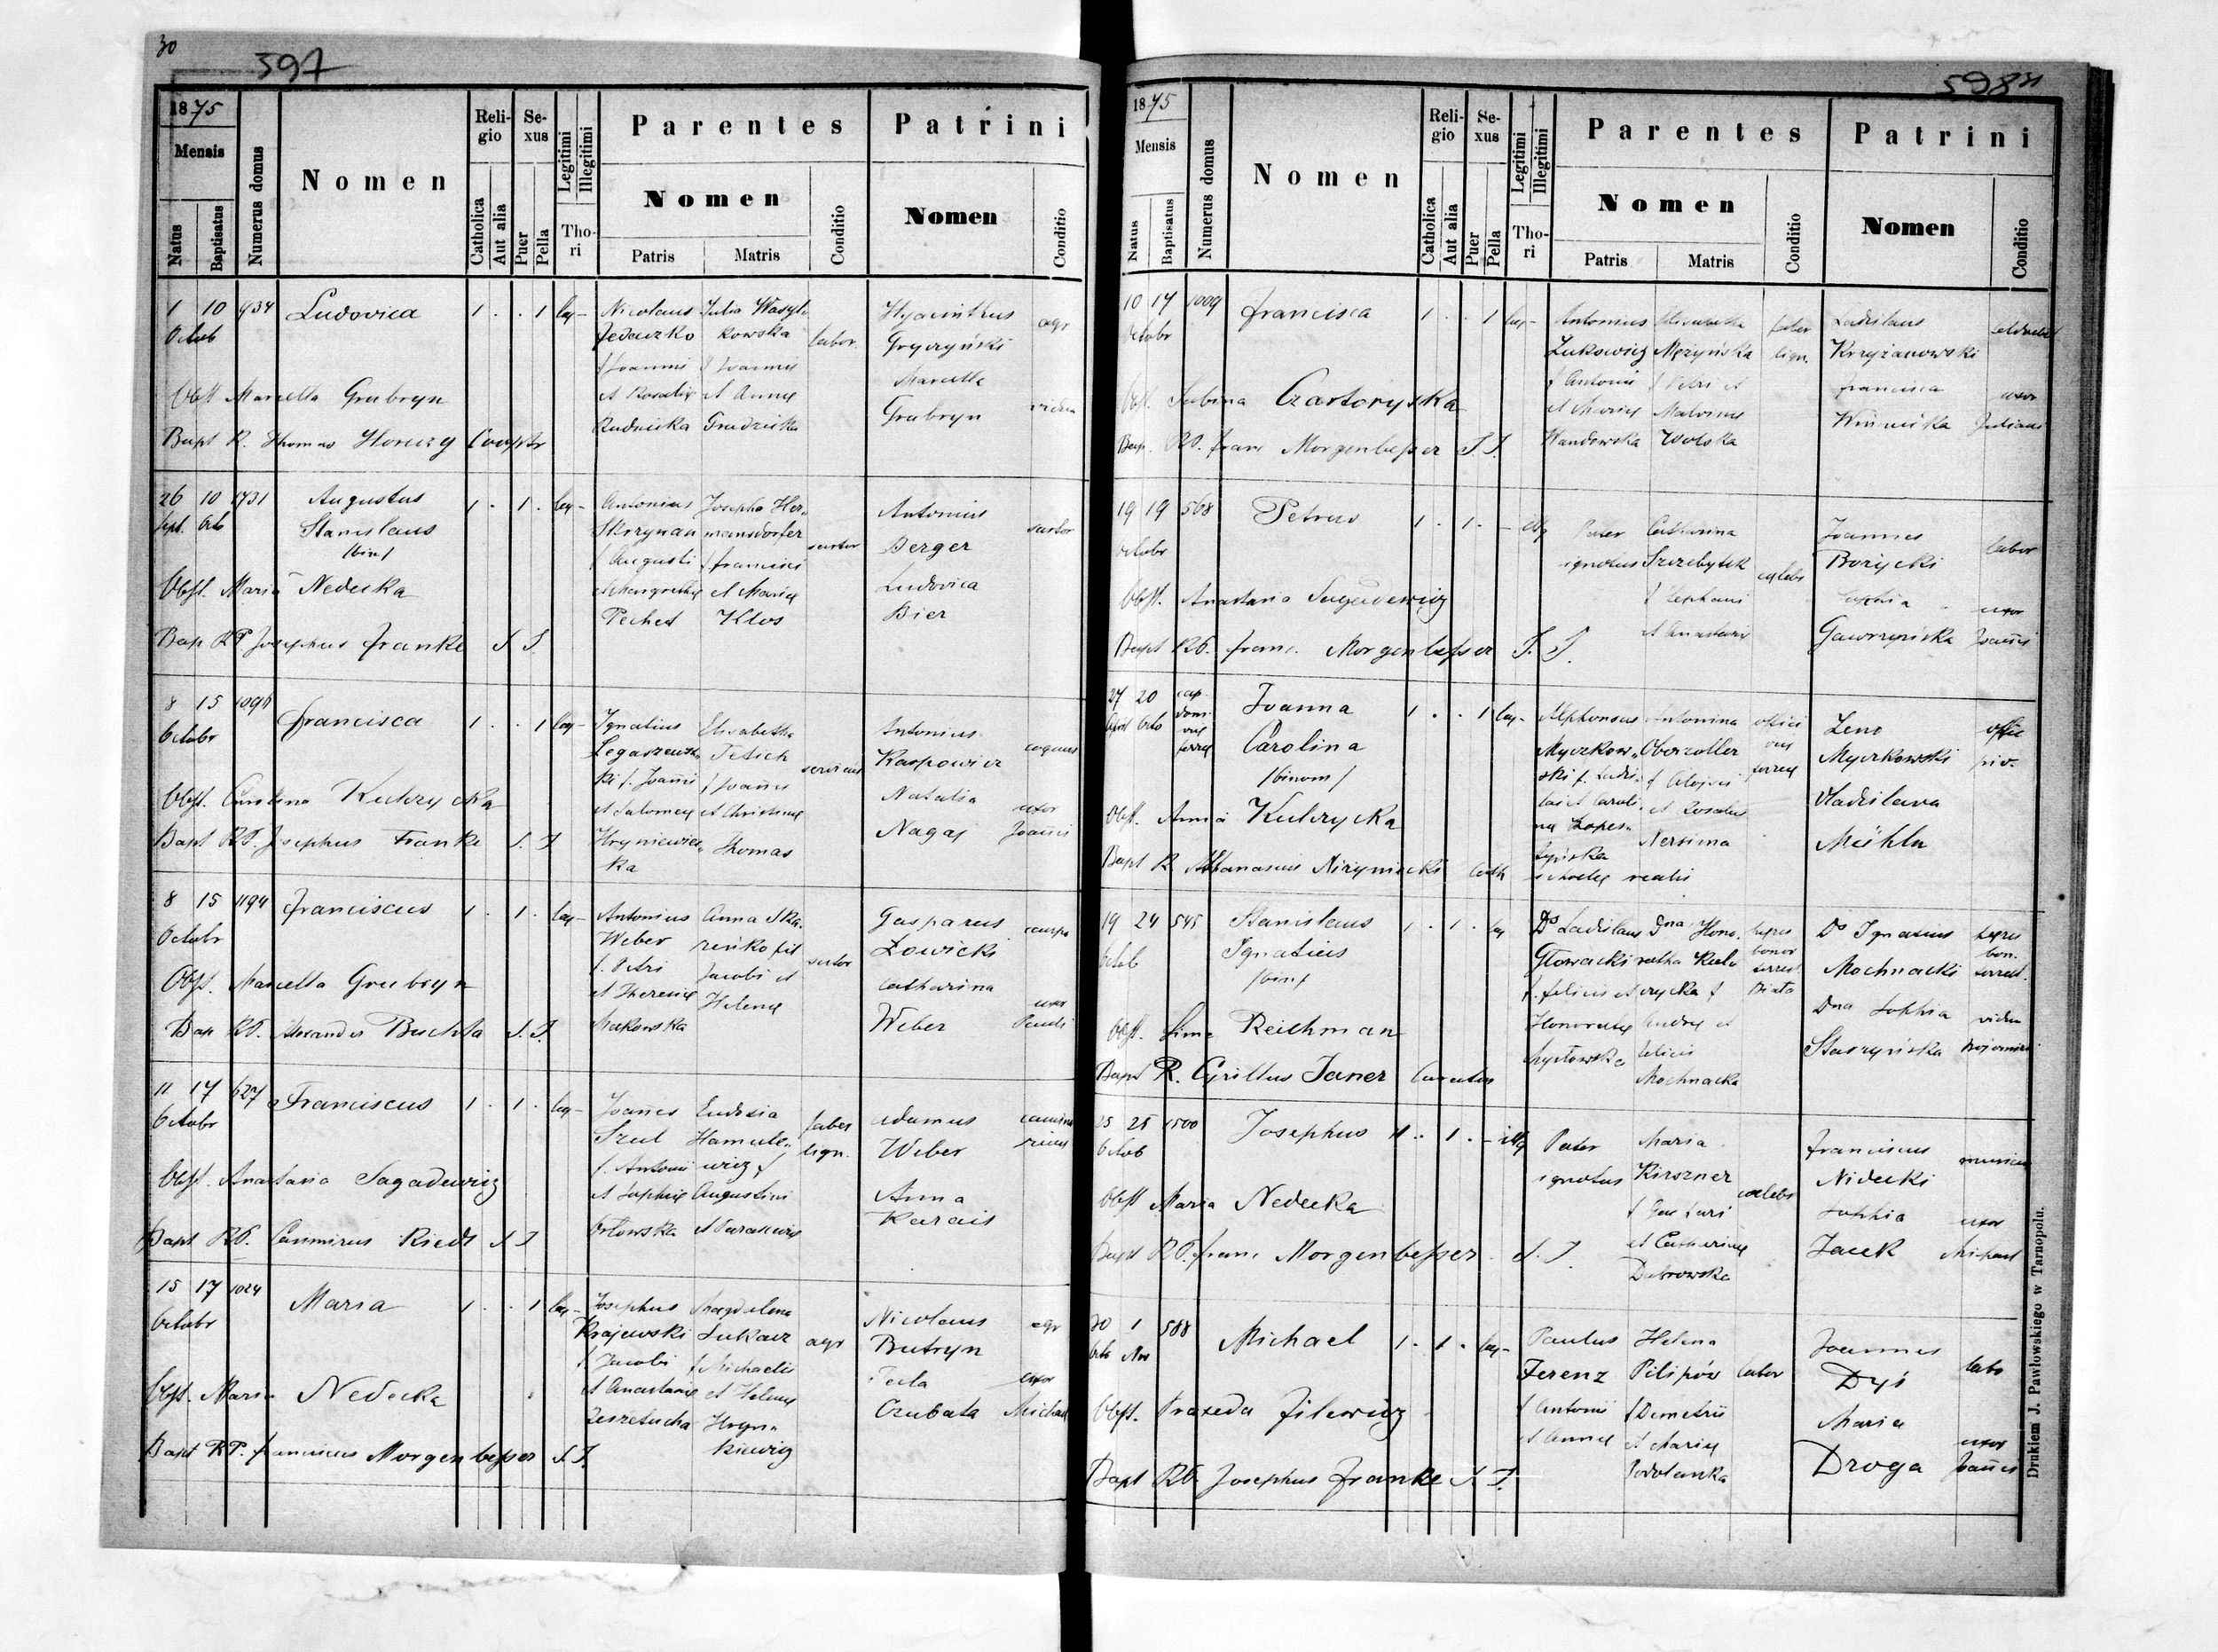 30
597
1875
Mensis
Natus
Baptisatus
Numerus domus
Nomen
Religio
Catholica
Aut alia
Sexus
Puer
Pella
Legitimi
Illegitimi
Thori
Parentes
Nomen
Patris
Matris
Conditio
Patrini
Nomen
Conditio
1 10 Ludovica 1 . . 1 leg-
Octob
Nicolaus
Rudnicka
Julia Wasyl-
kowska
labor
Hyacinthus
Gryczyński
agr
Marcella
Grubryn
vidua
Obst Marcella Grubryn
Bapt R. Thomas
26 10 1731 Augustus 1 . 1 . leg-
Sept. Octo Stanislaus
/bin/
Antonius
f Augusti
et Margrethe
Pechet
Josepha Her-
mansdorfer
f Francisci
et Mariae
Klos
sartor
Antonius
Berger
sartor
Ludovica
Bier
Obst. Maria Nedecka
Bap RP. Josephus Franke S J.
8 15 Francisca 1 . . 1 leg-
Octobr
Ignatius
Legaszews-
ki f. Joannis
et Salomeae
Hryniewiec-
ka
Elisabetha
Tetich
f Joannis
et Christinae
Thomas
Antonius
Kaspowicz
coquus
Natalia
Nagaj
uxor
Joannis
Obst. Carolina Kulczycka
Bapt RP. Josephus Franke S. J
8 15 1194 Franciscus 1 . 1 . leg-
Octobr
Antonius
Weber
f. Petri
et Theresiae
Makowska
Anna Ska-
Jacobi et
Helenae
sartor
Gasparus
Łowicki
Catharina
Weber
uxor
Pauli
Obst. Marcella Grubryn
Bap RP. Alexander Buchta S. J.
11 17 627 Franciscus 1 . 1 . leg-
Octobr
Joannes
Szul
f. Antonii
et Sophiae
Orłowska
Eudosia
Hamule-
wicz f
Augustini
et Parasceviae
faber
lign.
Adamus
Weber
Anna
Karais
Obst. Anastasia Sagadewicz
Bapt RP. Casimirus Riedl S J
15 17 1024 Maria 1 . . 1 leg-
Octobr
Josephus
Krajewski
f. Jacobi
et Anastasiae
Zeszetucha
Magdalena
Łukasz
f Michaelis
et Helenae
Hryn-
kiewicz
agr
Nicolaus
Butryn
agr
Tecla
Czubata
uxor
Michael
Obst. Maria Nedecka
Bapt RP. Franciscus Morgenbesser S J.
598
1875
Mensis
Natus
Baptisatus
Numerus domus
Nomen
Religio
Catholica
Aut alia
Sexus
Puer
Pella
Legitimi
Illegitimi
Thori
Parentes
Nomen
Patris
Matris
Conditio
Patrini
Nomen
Conditio
10 17 1009 Francisca 1 . . 1 leg-
Octobr
Antonius
Łukowicz
f Antonii
et Mariae
Wandowska
Elisabetha
Mężyńska
f Petri et
Malvinae
Wolska
faber
lign.
Ladislaus
Krzyżanowski
Francisca
Winnicka
uxor
Juliani
Obst. Sabina Czartoryska
Bap. RP. Franc Morgenbesser S. J.
19 19 568 Petrus 1 . 1 . - illeg
Octobr
Pater
ignotus
Catharina
f Stephani
et Anastasiae
caelebs
Joannes
Borycki
labor
Sophia
Gawrzyńska
uxor
Joannis
Obst. Anastasia Sagadewicz
Bapt RP. Franc. Morgenbesser S. J.
27 20 Joanna 1 . . 1 leg-
April Octo Carolina
/binom/
Alphonsus
Myczkow-
ski f. Ladis-
lai et Caroli-
nae Łopes-
zyńska
Antonina
Oberzoller
f Aloysii
et Rosaliae
Nersima
Zeno
Myczkowski
Vladislava
Mühln
Obst. Anna Kulczycka
Bapt R. Athanasius
19 24 545 Stanislaus 1 . 1 . leg
Octob Ignatius
/bin/
Ds Ladislaus
Głowacki
f. Felicis et
Honoratae
Dna Hono-
ratha Kul-
czycka f
Andreae et
Felicis
Mochnacka
Ds Ignatius
Mochnacki
Dna Sophia
Starzyńska
vidua
Obst. Reichman
Bapt R. Cyrillus Janer Curatus
25 25 1500 Josephus 1 . 1 . - illeg
Octob
Pater
ignotus
Maria
Kirszner
et Catharinae
Dąbrowska
caelebs
Franciscus
Nidecki
Sophia
Jacek
uxor
Obst Maria Nedecka
Bapt RP. Franc Morgenbesser S. J.
30 1 588 Michael 1 . 1 . leg-
Octo Nov
Paulus
Ferenz
f Antonii
et Annae
Helena
Pilipów
f Demetrii
et Mariae
Podolanka
labor
Joannes
Dyś
labo
Maria
Droga
uxor
Joannis
Obst. Praxeda Filewicz
Bapt RP. Josephus Franke S. J.
Drukiem J. Pawłowskiego w Tarnopolu.